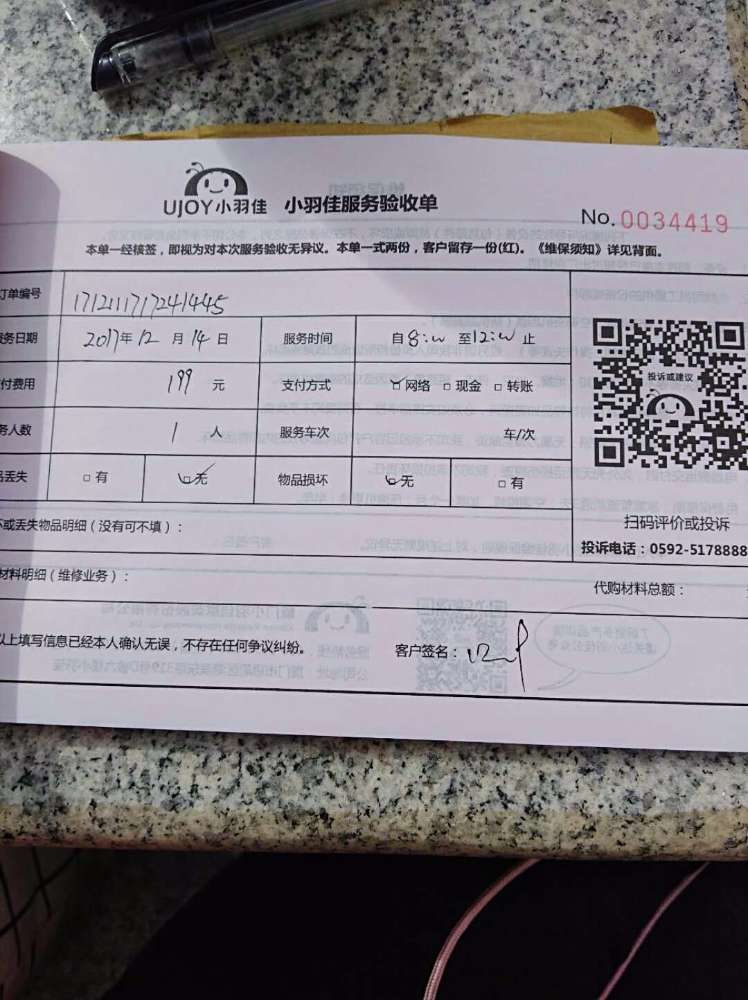 UJOY小羽佳 小羽佳服务验收单
No. 0034419
本单一经核签，即视为对本次服务验收无异议。本单一式两份，客户留存一份(红)。《维保须知》详见背面。
订单编号 1712111717241445
务日期 2017年12月14日 服务时间 自8:00 至12:00 止
付费用 199 元 支付方式 网络 现金 转账
务人数 1 人 服务车次 车/次
品丢失 有 无 物品损坏 无 有
投诉或建议
扫码评价或投诉
投诉电话：0592-5178888
坏或丢失物品明细（没有可不填）：
材料明细（维修业务）： 代购材料总额：
以上填写信息已经本人确认无误，不存在任何争议纠纷。 客户签名：